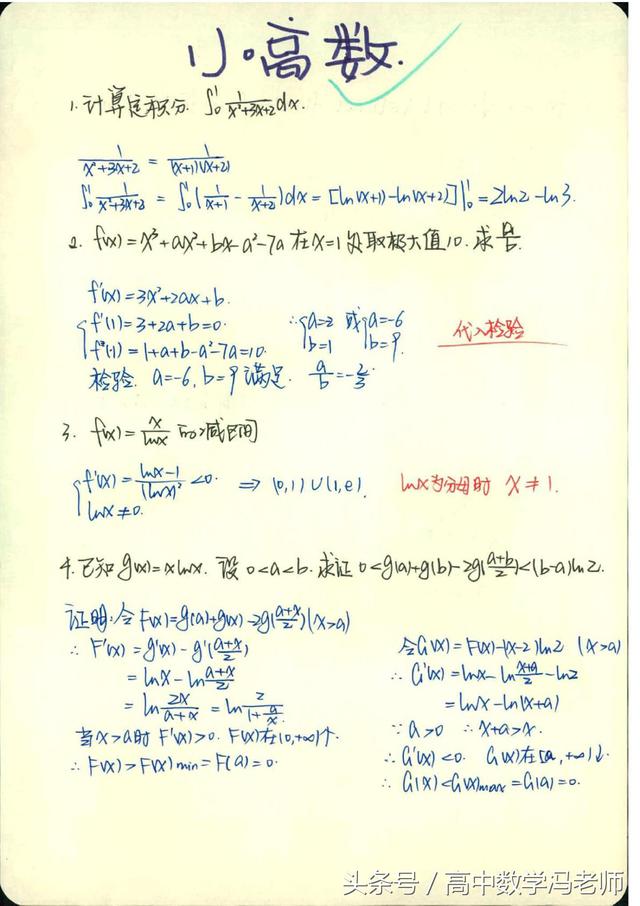 小高数.
1.计算定积分. ∫₀¹ 1/(x²+3x+2) dx.
1/(x²+3x+2) = 1/((x+1)(x+2))
∫₀¹ 1/(x²+3x+2) = ∫₀¹ (1/(x+1) - 1/(x+2))dx = [ln(x+1)-ln(x+2)]|₀¹ = 2ln2-ln3.
2. f(x)=x³+ax²+bx-a²-7a 在x=1处取极大值10. 求a/b.
f'(x)=3x²+2ax+b.
f'(1)=3+2a+b=0. ∴{a=2 或{a=-6
f(1)=1+a+b-a²-7a=10. b=1 b=9. 代入检验
检验. a=-6,b=9满足. a/b=-2/3
3. f(x)=x/lnx 的减区间
{f'(x)=(lnx-1)/(lnx)²<0. ⇒ (0,1)∪(1,e). lnx为分母时 x≠1.
lnx≠0.
4.已知g(x)=xlnx. 设0<a<b. 求证0<g(a)+g(b)-2g((a+b)/2)<(b-a)ln2.
证明:令F(x)=g(a)+g(x)-2g((a+x)/2)(x>a)
∴ F'(x)=g'(x)-g'((a+x)/2)
=lnx-ln(a+x)/2
=ln 2x/(a+x) =ln 2/(1+a/x)
当x>a时 F'(x)>0. F(x)在(0,+∞)↑.
∴ F(x)>F(x)min=F(a)=0.
令G(x)=F(x)-(x-2)ln2 (x>a)
∴ G'(x)=lnx-ln(x+a)/2-ln2
=lnx-ln(x+a)
∵ a>0 ∴ x+a>x.
∴ G'(x)<0. G(x)在[a,+∞)↓.
∴ G(x)<G(x)max=G(a)=0.
头条号 / 高中数学冯老师